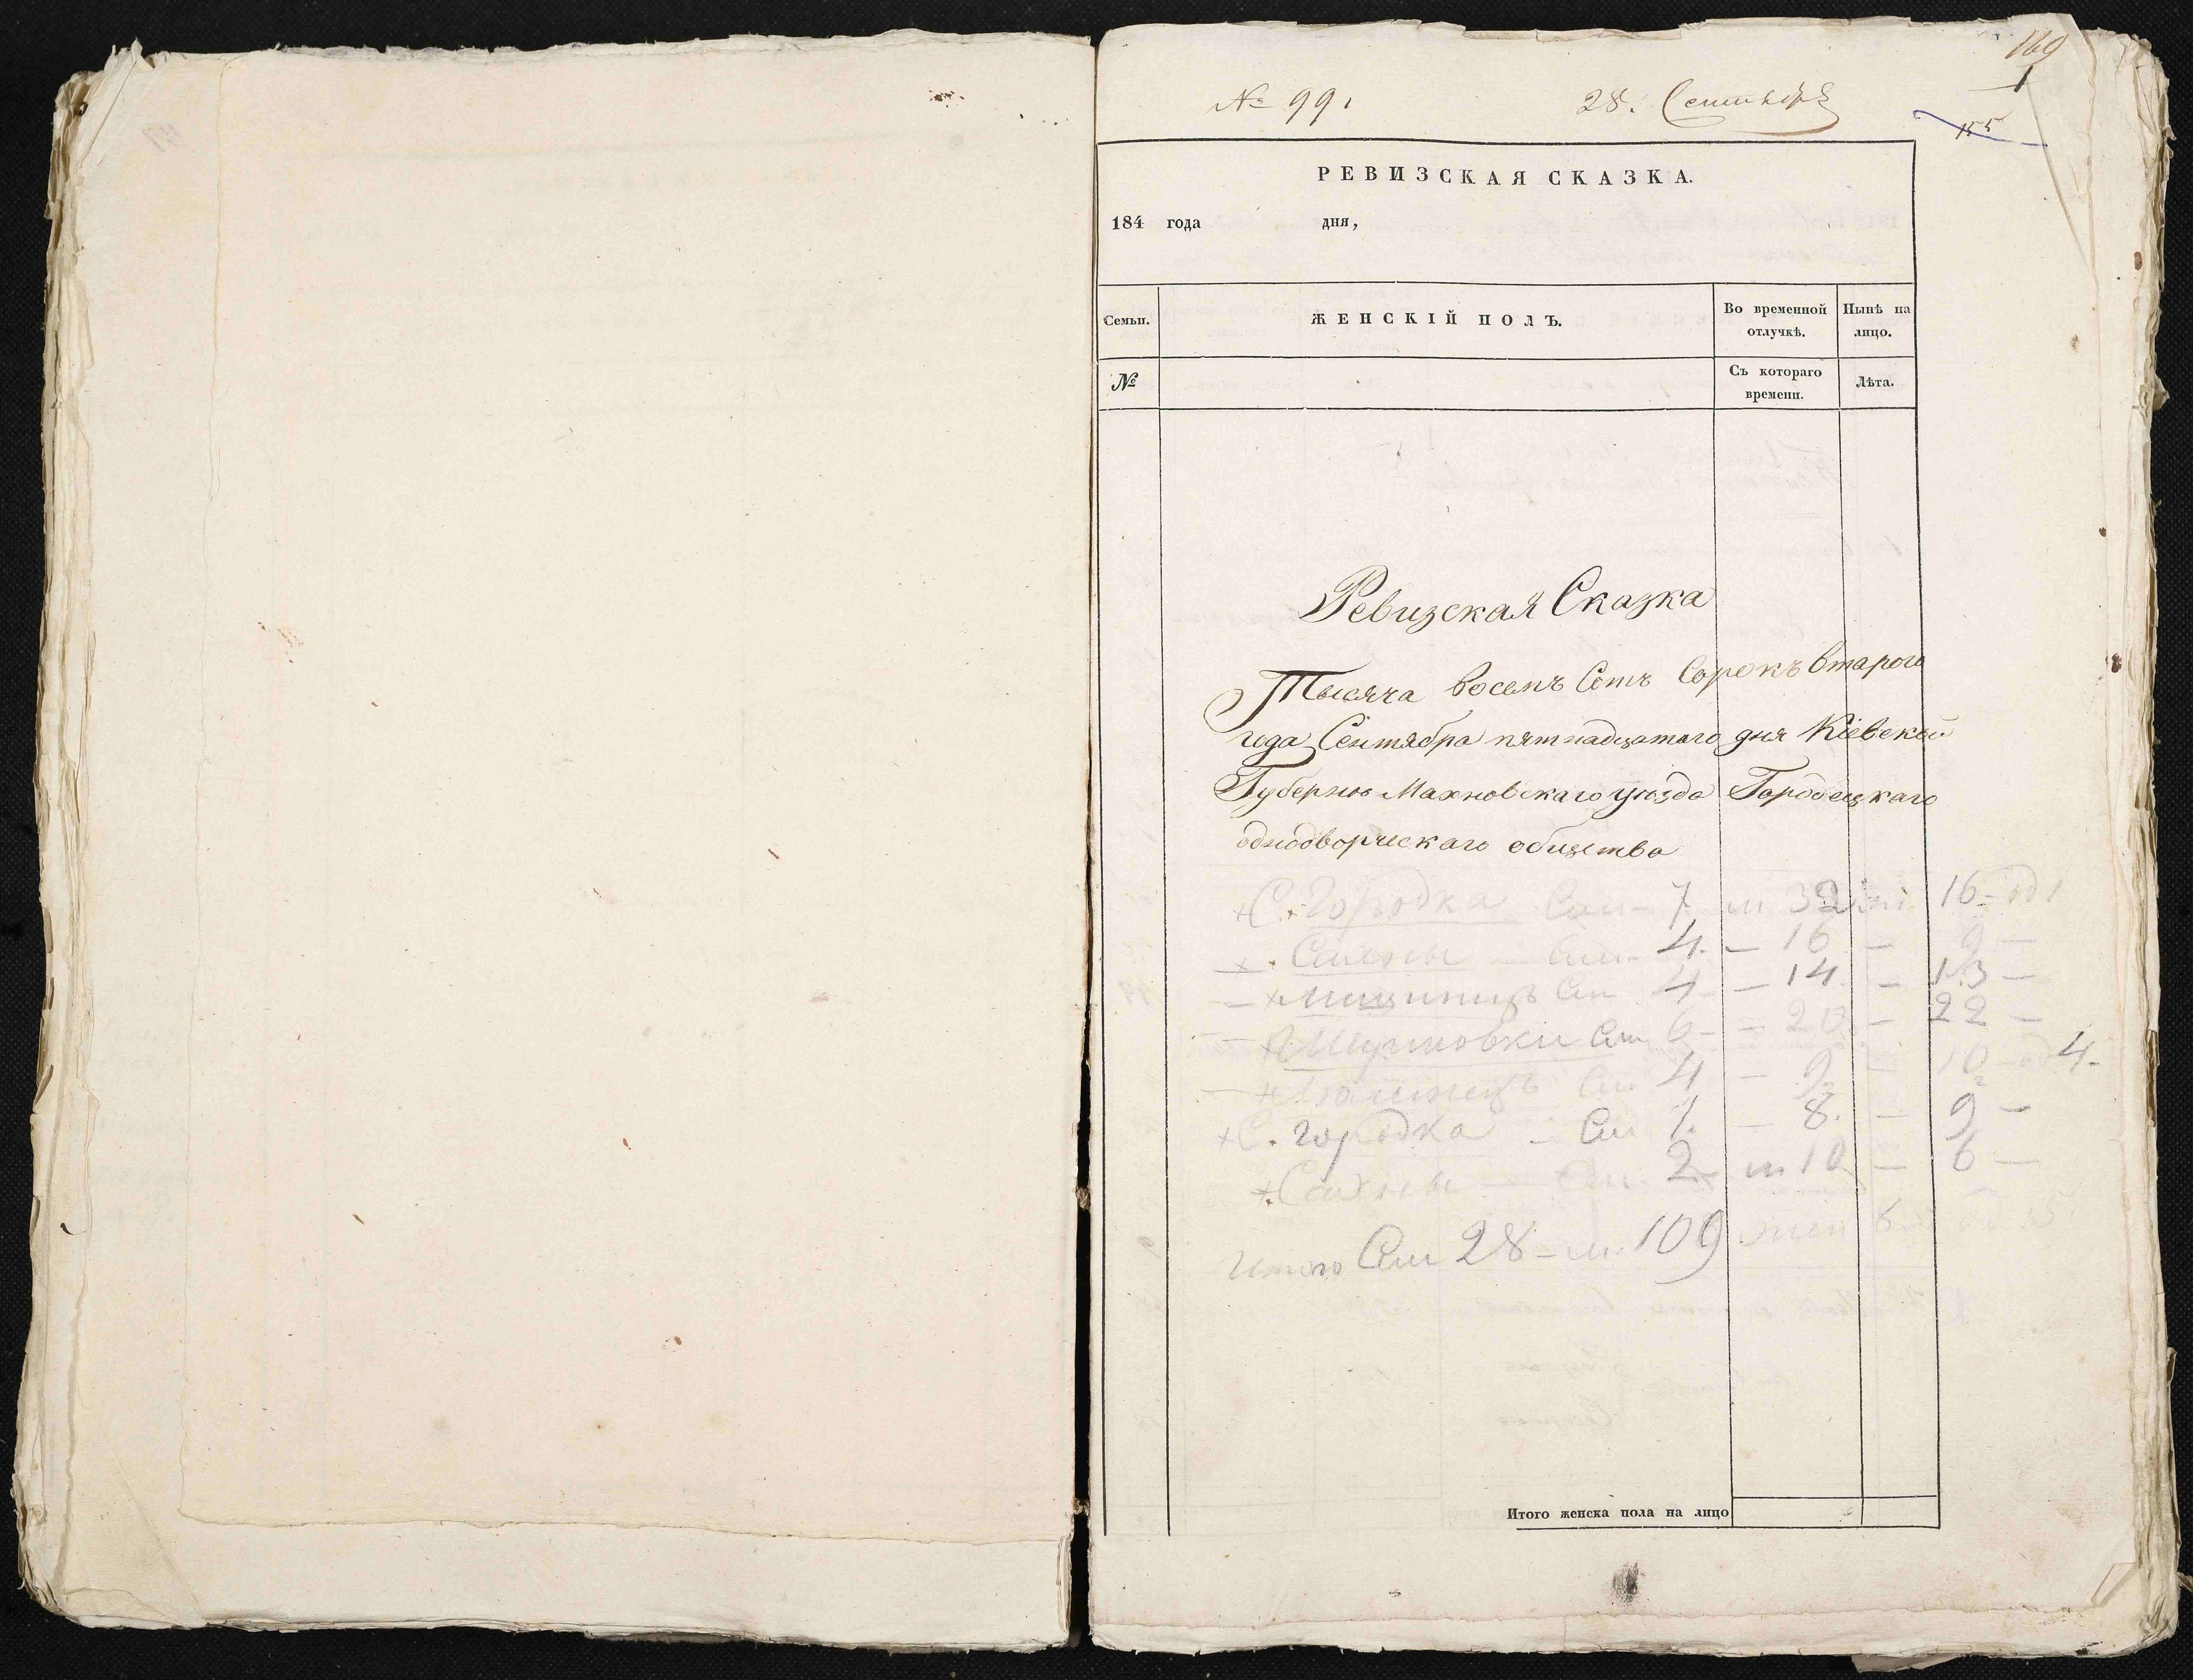 169
1
№ 99.
28. Сентября
155
РЕВИЗСКАЯ СКАЗКА.
184 года дня,
Семьи. ЖЕНСКІЙ ПОЛЪ. Во временной отлучкѣ. Нынѣ на лицо.
№ Съ котораго времени. Лѣта.
Ревизская Сказка
Тысяча восемъ Сотъ Сорокъ втараго
года Сентября пятнадцатаго дня Кіевской
Губерніи Махновскаго уѣзда Городецкаго
однодворческаго общества
С. Городка Сем 7 м 32 16
Сахны Сем 4 - 16 - 9 -
4 - 14 - 13 -
Сем 6 - 20 - 22 -
Сем 4 - 9 10 4
С. Городка - Сем 1. - 8. - 9 -
Сахны Сем 2 м 10 - 6 -
Итого Сем 28 - м 109 жен
Итого женска пола на лицо